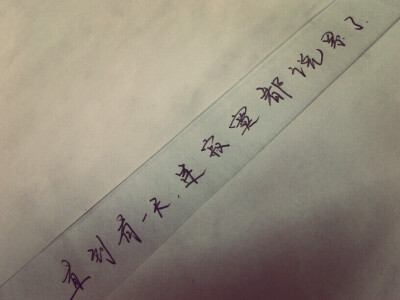 直到有一天.连寂寞都说累了.